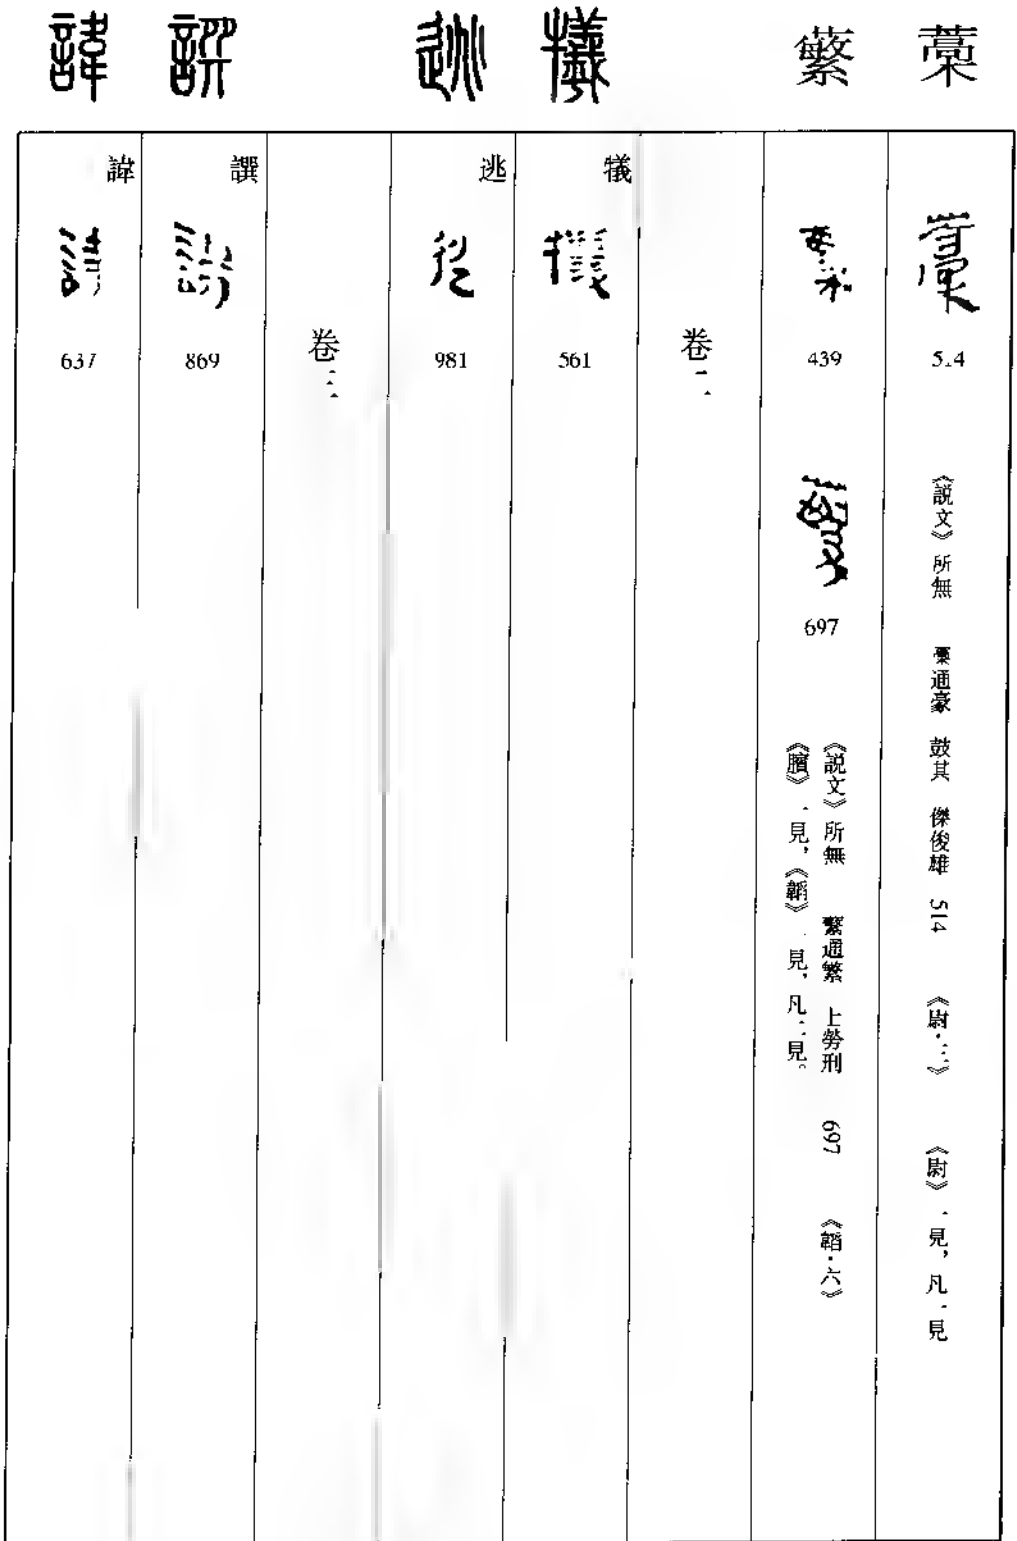 藁
《説文》所無　藁通豪　鼓其　傑俊雄　514　《尉·三》　《尉》一見，凡一見
蘩
439
697
《説文》所無　蘩通繁　上勞刑　697　《韜·六》
《臏》一見，《韜》一見，凡二見。
卷二
犧
561
逃
981
卷三
譔
869
諱
637